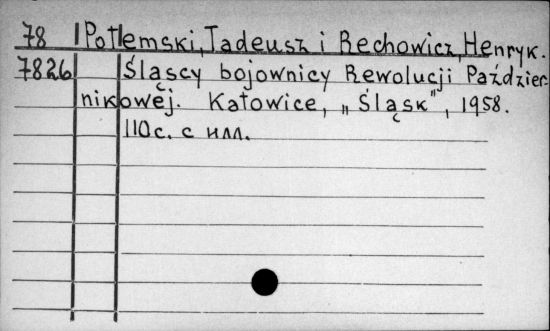 78 Potlemski, Tadeusz i Rechowicz, Henryk.
7826 Śląscy bojownicy Rewolucji Paździer-
nikowej. Katowice, „Śląsk", 1958.
110с. с илл.